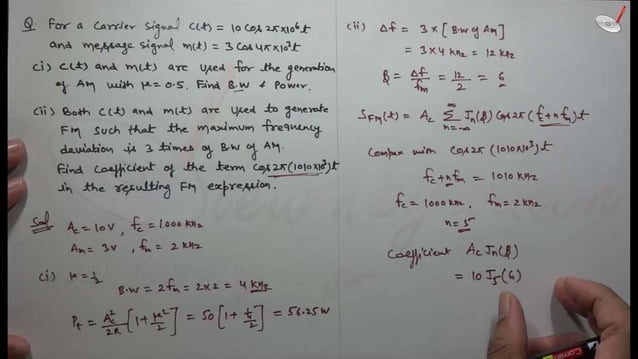 Q. For a Carrier signal C(t) = 10 Cos 2π×10⁶t
and message signal m(t) = 3 Cos 4π×10³t
(i) C(t) and m(t) are used for the generation
of AM with μ = 0.5. Find B.W & Power.
(ii) Both C(t) and m(t) are used to generate
FM such that the maximum frequency
deviation is 3 times of B.W of AM.
Find Coefficient of the term Cos 2π(1010×10³)t
in the resulting FM expression.
Sol
Ac = 10V, fc = 1000 KHz
Am = 3V, fm = 2 KHz
(i) μ = 1/2
B.W = 2fm = 2×2 = 4 KHz
Pt = Ac²/2R [1 + μ²/2] = 50 [1 + ¼/2] = 56.25 W
(ii) Δf = 3 × [B.W of AM]
= 3×4 KHz = 12 KHz
β = Δf/fm = 12/2 = 6
SFM(t) = Ac ∞Σn=-∞ Jn(β) Cos 2π(fc+nfm)t
Compare with Cos 2π(1010×10³)t
fc+nfm = 1010 KHz
fc = 1000 KHz, fm = 2 KHz
n = 5
Coefficient Ac Jn(β)
= 10 J5(6)